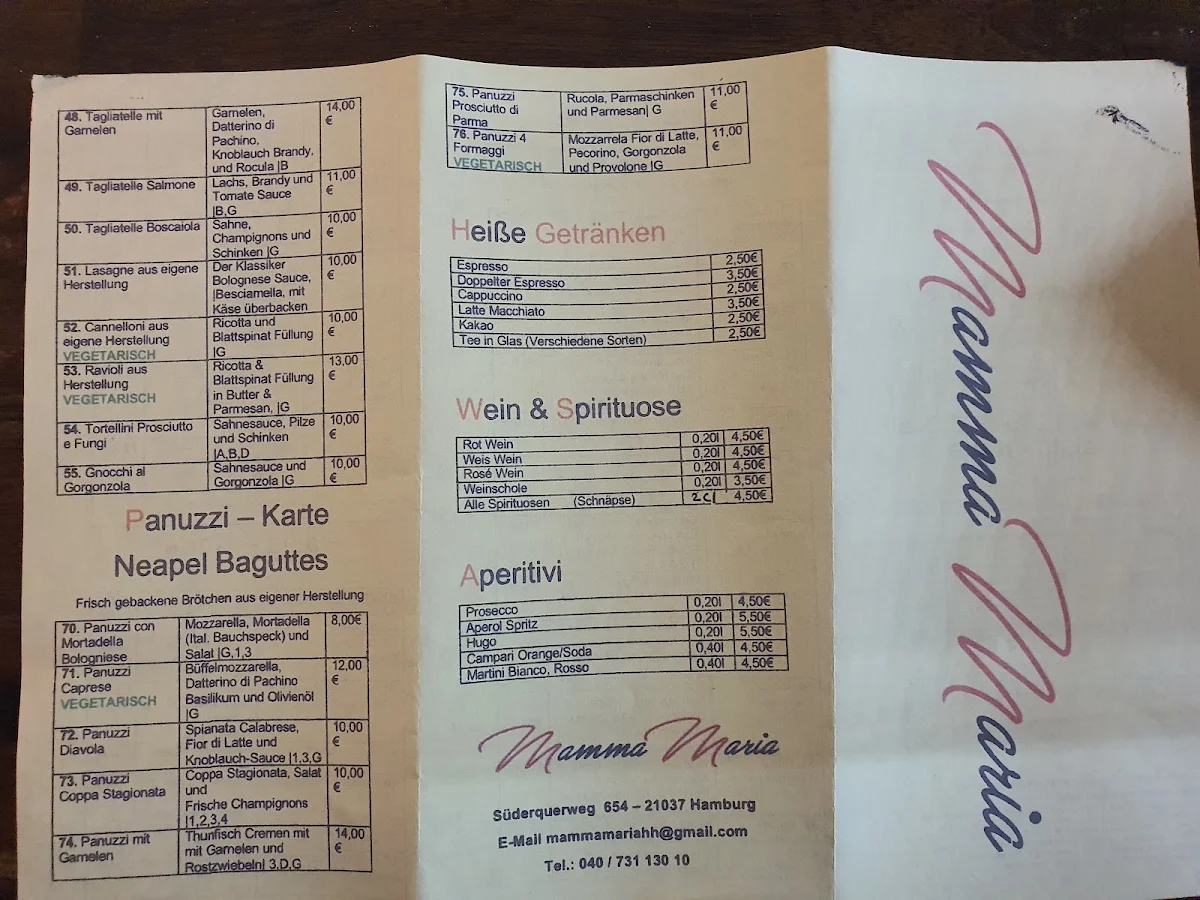 48. Tagliatelle mit
Garnelen
Garnelen,
Datterino di
Pachino,
Knoblauch Brandy,
und Rocula |B
14,00
€
49. Tagliatelle Salmone
Lachs, Brandy und
Tomate Sauce
|B,G
11,00
€
50. Tagliatelle Boscaiola
Sahne,
Champignons und
Schinken |G
10,00
€
51. Lasagne aus eigene
Herstellung
Der Klassiker
Bolognese Sauce,
|Besciamella, mit
Käse überbacken
10,00
€
52. Cannelloni aus
eigene Herstellung
VEGETARISCH
Ricotta und
Blattspinat Füllung
|G
10,00
€
53. Ravioli aus
Herstellung
VEGETARISCH
Ricotta &
Blattspinat Füllung
in Butter &
Parmesan, |G
13,00
€
54. Tortellini Prosciutto
e Fungi
Sahnesauce, Pilze
und Schinken
|A,B,D
10,00
€
55. Gnocchi al
Gorgonzola
Sahnesauce und
Gorgonzola |G
10,00
€
Panuzzi – Karte
Neapel Baguttes
Frisch gebackene Brötchen aus eigener Herstellung
70. Panuzzi con
Mortadella
Bologniese
Mozzarella, Mortadella
(Ital. Bauchspeck) und
Salat |G,1,3
8,00€
71. Panuzzi
Caprese
VEGETARISCH
Büffelmozzarella,
Datterino di Pachino
Basilikum und Olivienöl
|G
12,00
€
72. Panuzzi
Diavola
Spianata Calabrese,
Fior di Latte und
Knoblauch-Sauce |1,3,G
10,00
€
73. Panuzzi
Coppa Stagionata
Coppa Stagionata, Salat
und
Frische Champignons
|1,2,3,4
10,00
€
74. Panuzzi mit
Garnelen
Thunfisch Cremen mit
mit Garnelen und
Rostzwiebeln| 3,D,G
14,00
€
75. Panuzzi
Prosciutto di
Parma
Rucola, Parmaschinken
und Parmesan| G
11,00
€
76. Panuzzi 4
Formaggi
VEGETARISCH
Mozzarrela Fior di Latte,
Pecorino, Gorgonzola
und Provolone |G
11,00
€
Heiße Getränken
Espresso 2,50€
Doppelter Espresso 3,50€
Cappuccino 2,50€
Latte Macchiato 3,50€
Kakao 2,50€
Tee in Glas (Verschiedene Sorten) 2,50€
Wein & Spirituose
Rot Wein 0,20l 4,50€
Weis Wein 0,20l 4,50€
Rosé Wein 0,20l 4,50€
Weinschole 0,20l 3,50€
Alle Spirituosen (Schnäpse) 2cl 4,50€
Aperitivi
Prosecco 0,20l 4,50€
Aperol Spritz 0,20l 5,50€
Hugo 0,20l 5,50€
Campari Orange/Soda 0,40l 4,50€
Martini Bianco, Rosso 0,40l 4,50€
Mamma Maria
Süderquerweg 654 – 21037 Hamburg
E-Mail mammamariahh@gmail.com
Tel.: 040 / 731 130 10
Mamma Maria